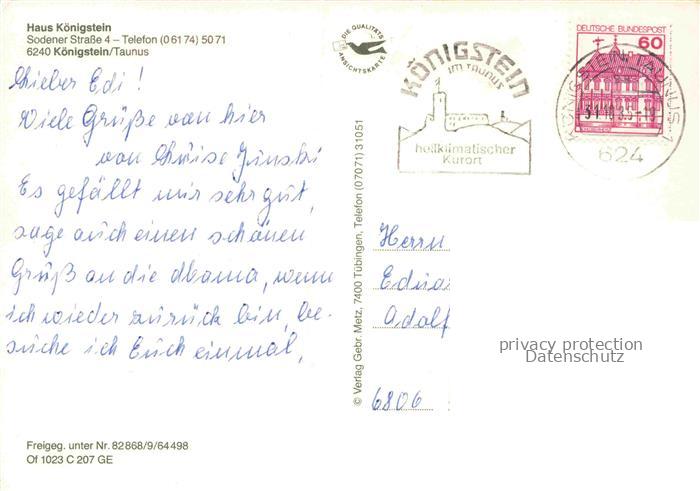 Haus Königstein
Sodener Straße 4 – Telefon (0 61 74) 50 71
6240 Königstein/Taunus
Lieber Edi!
Viele Grüße von hier
von Luise
Es gefällt mir sehr gut,
sage auch einen schönen
Gruß an die Mama, wenn
ich wieder zurück bin, be-
suche ich Euch einmal,
Freigeg. unter Nr. 82868/9/64498
Of 1023 C 207 GE
DIE QUALITÄTS
ANSICHTSKARTE
© Verlag Gebr. Metz, 7400 Tübingen, Telefon (07071) 31051
KÖNIGSTEIN
IM TAUNUS
heilklimatischer
Kurort
DEUTSCHE BUNDESPOST
60
KÖNIGSTEIN, TAUNUS 1
624
Herrn
Edua
Adolf
6806
privacy protection
Datenschutz